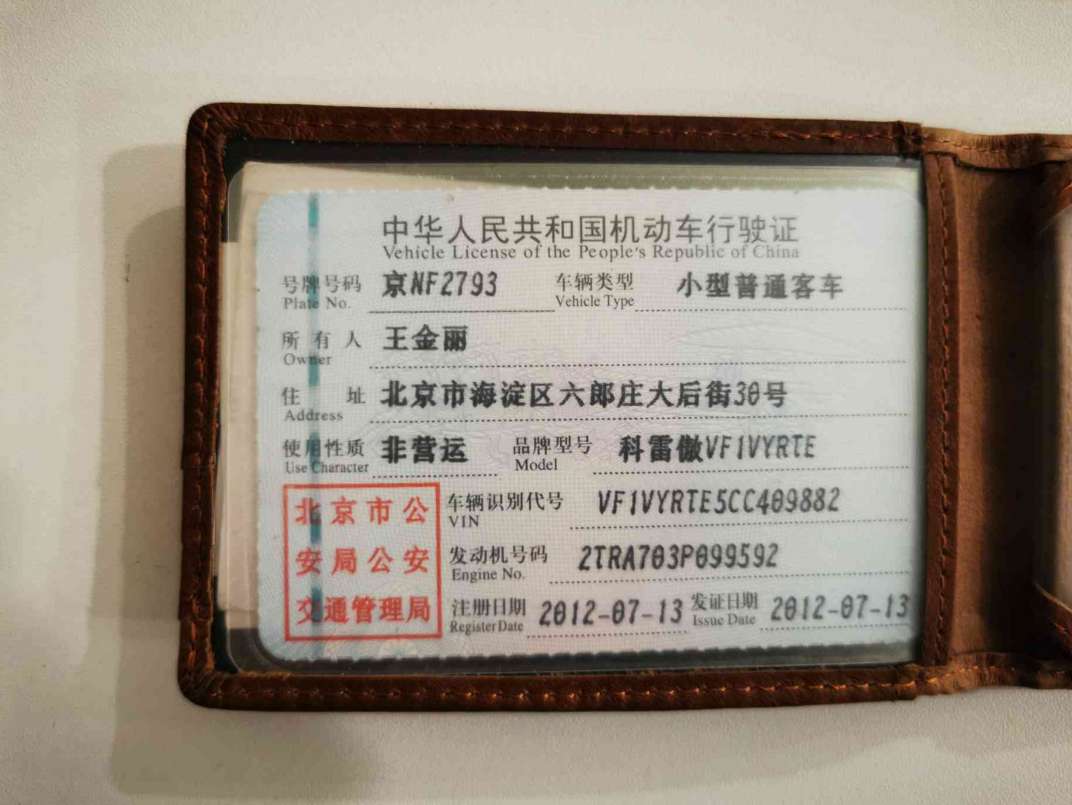 中华人民共和国机动车行驶证
Vehicle License of the People's Republic of China
号牌号码 京NF2793 车辆类型 小型普通客车
Plate No. Vehicle Type
所有人 王金丽
Owner
住址 北京市海淀区六郎庄大后街30号
Address
使用性质 非营运 品牌型号 科雷傲VF1VYRTE
Use Character Model
北京市公
安局公安
交通管理局
车辆识别代号 VF1VYRTE5CC409882
VIN
发动机号码 2TRA703P099592
Engine No.
注册日期 2012-07-13 发证日期 2012-07-13
Register Date Issue Date